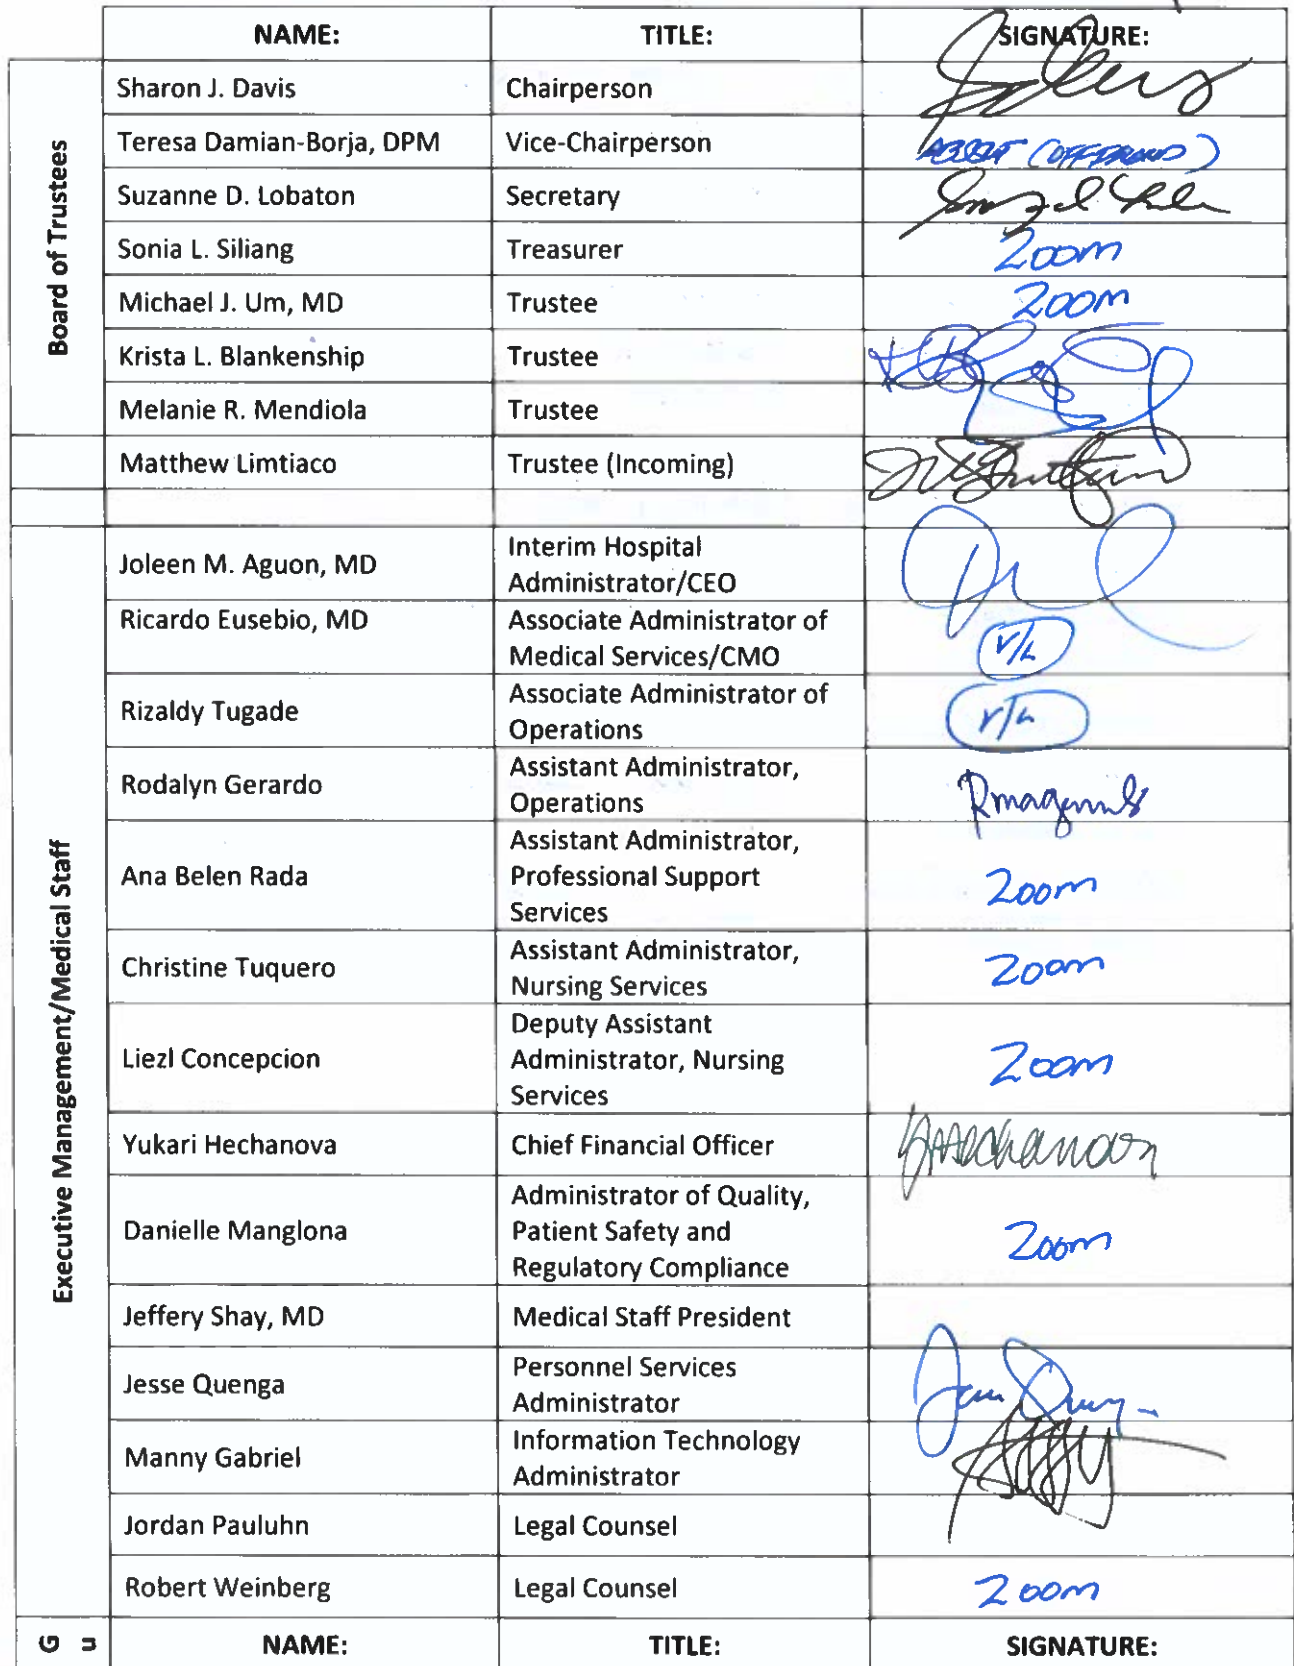 NAME: TITLE: SIGNATURE:
Board of Trustees
Sharon J. Davis Chairperson
Teresa Damian-Borja, DPM Vice-Chairperson
Suzanne D. Lobaton Secretary
Sonia L. Siliang Treasurer Zoom
Michael J. Um, MD Trustee Zoom
Krista L. Blankenship Trustee
Melanie R. Mendiola Trustee
Matthew Limtiaco Trustee (Incoming)
Executive Management/Medical Staff
Joleen M. Aguon, MD Interim Hospital
Administrator/CEO
Ricardo Eusebio, MD Associate Administrator of
Medical Services/CMO
Rizaldy Tugade Associate Administrator of
Operations
Rodalyn Gerardo Assistant Administrator,
Operations
Ana Belen Rada Assistant Administrator,
Professional Support
Services Zoom
Christine Tuquero Assistant Administrator,
Nursing Services Zoom
Liezl Concepcion Deputy Assistant
Administrator, Nursing
Services Zoom
Yukari Hechanova Chief Financial Officer
Danielle Manglona Administrator of Quality,
Patient Safety and
Regulatory Compliance Zoom
Jeffery Shay, MD Medical Staff President
Jesse Quenga Personnel Services
Administrator
Manny Gabriel Information Technology
Administrator
Jordan Pauluhn Legal Counsel
Robert Weinberg Legal Counsel Zoom
G u NAME: TITLE: SIGNATURE: